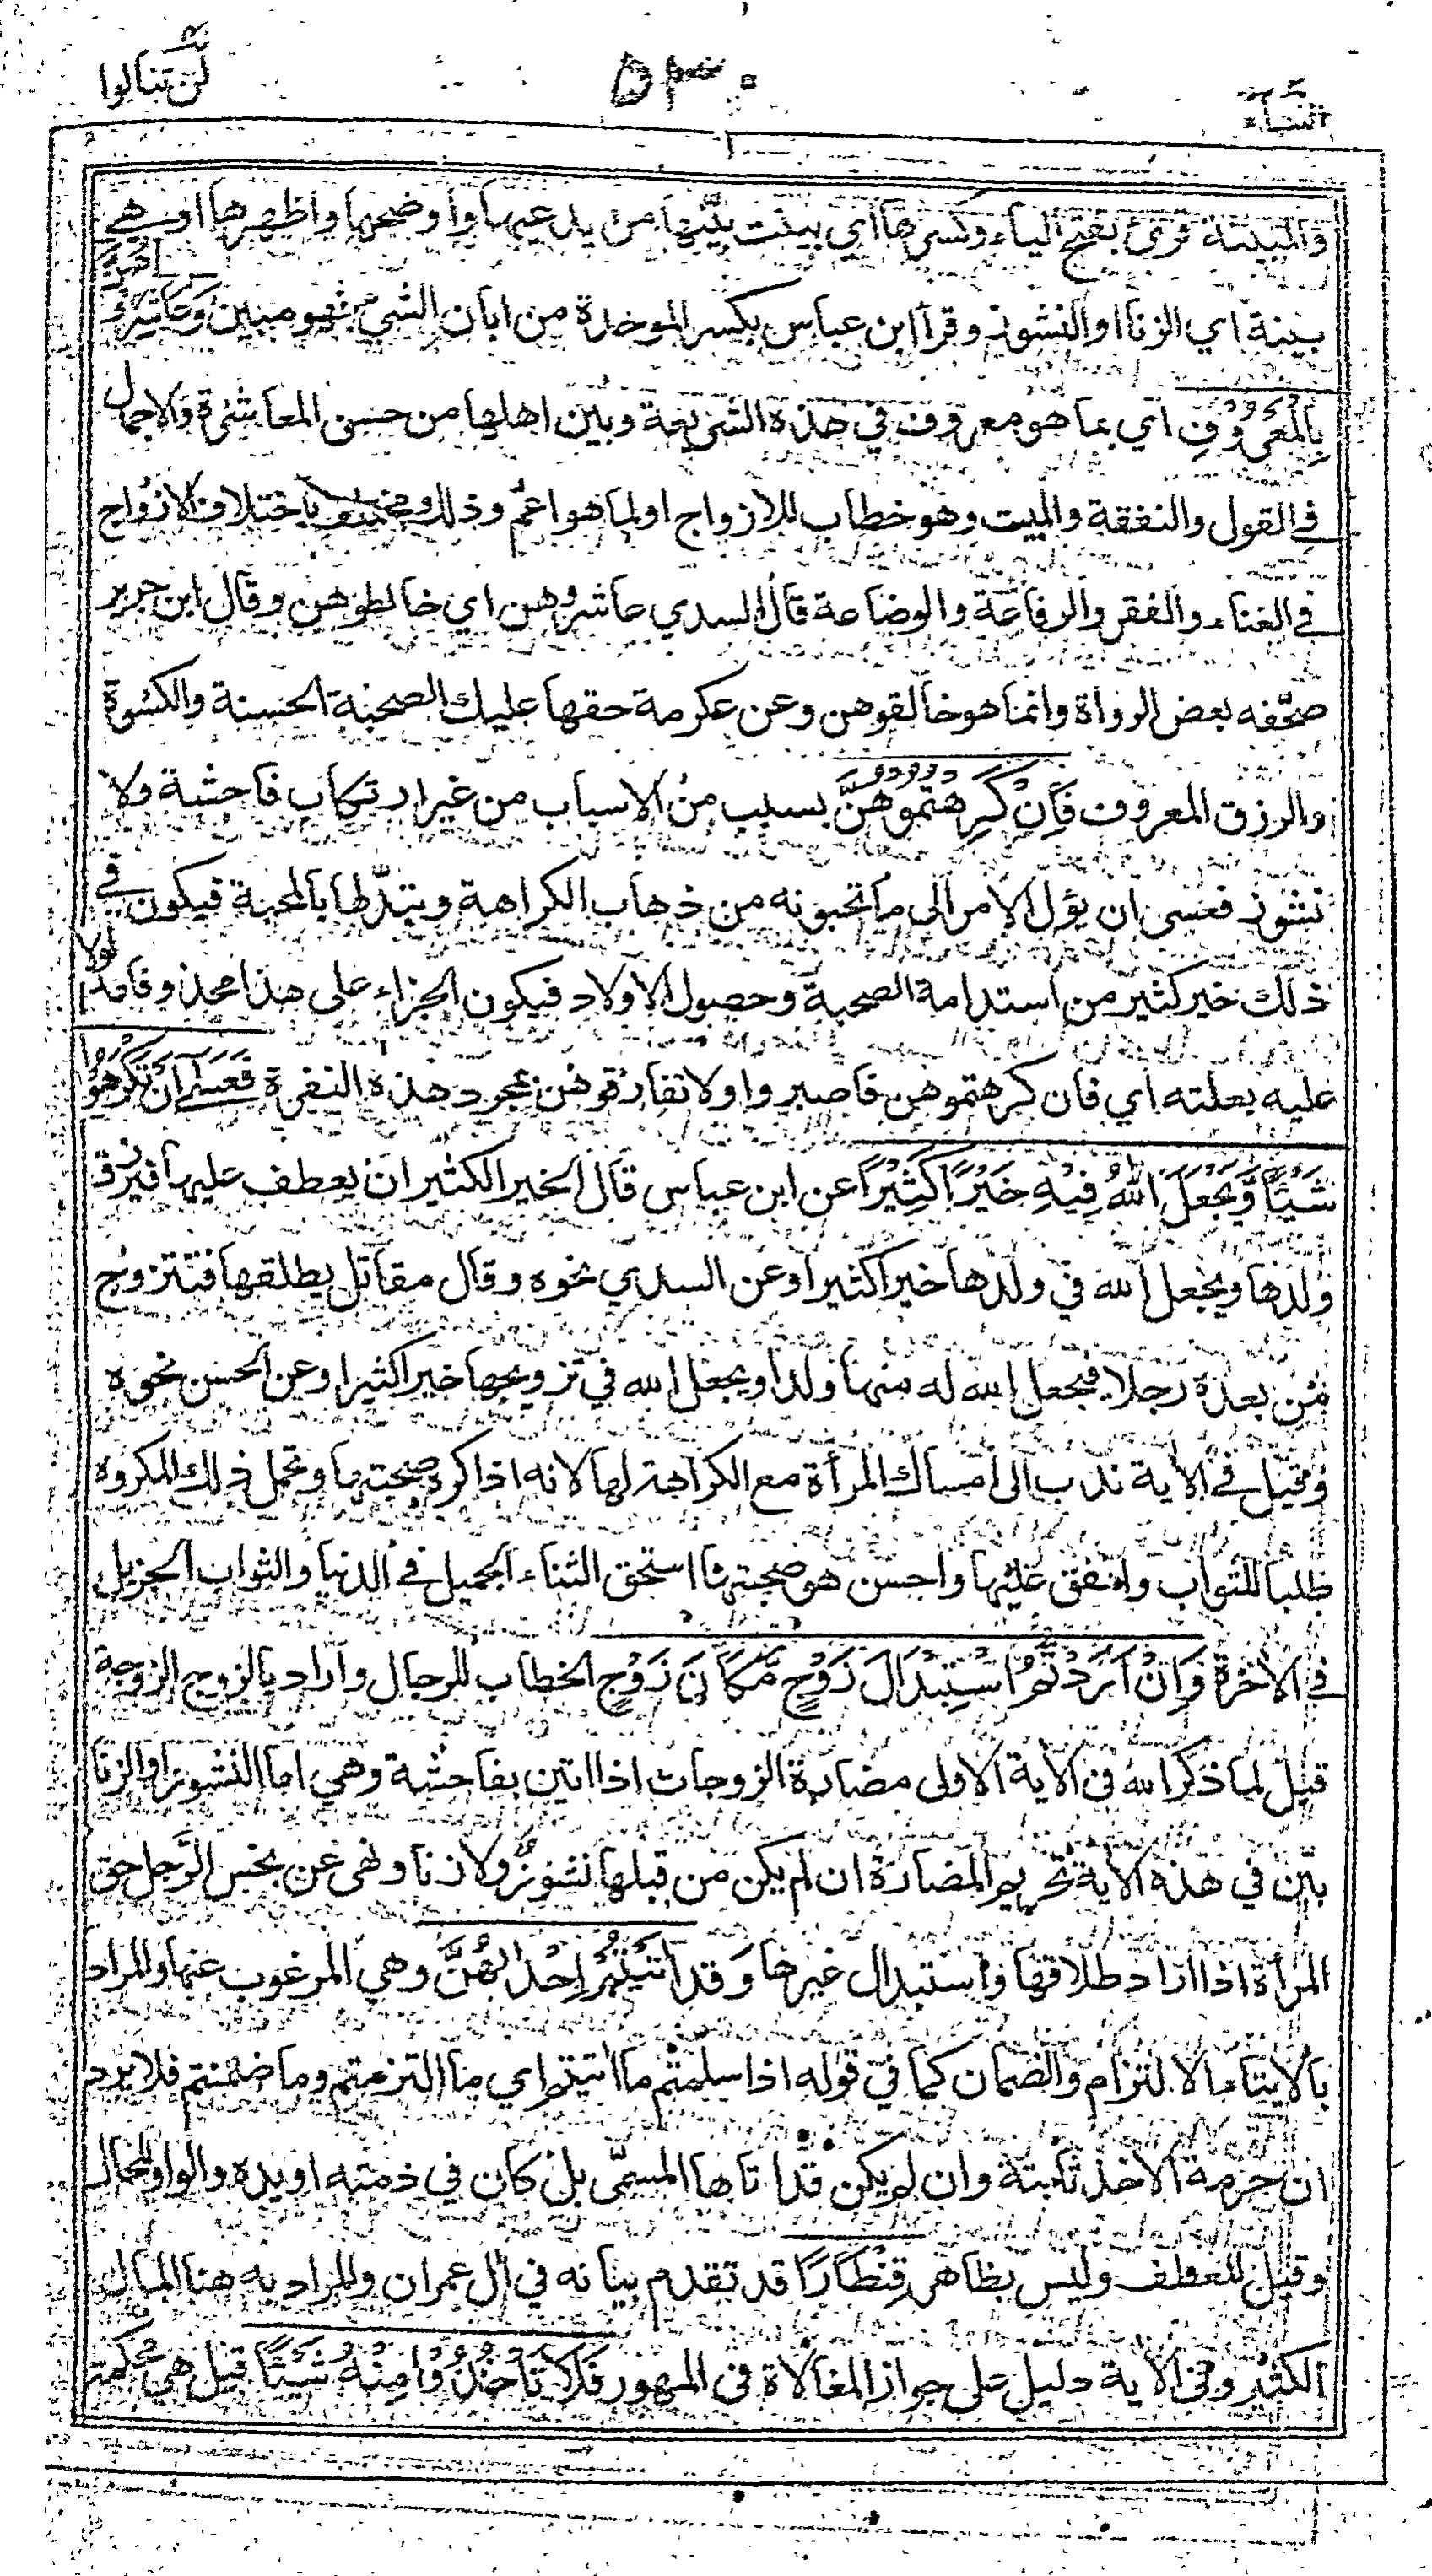 لن تنالوا ٥٣٠ النساء
والمبينة قرئ بفتح الياء وكسرها اي بينت بيّنها من يدعيها واوضحها واظهرها او هي
بينة اي الزنا او النشوز وقرأ ابن عباس بكسر الموحدة من ابان الشيء فهو مبين وَعَاشِرُوهُنَّ
بِالْمَعْرُوفِ اي بما هو معروف في هذه الشريعة وبين اهلها من حسن المعاشرة والاجمال
في القول والنفقة والمبيت وهو خطاب للازواج او لما هو اعم وذلك مختلف باختلاف الازواج
في الغناء والفقر والرفاعة والوضاعة قال السدي عاشروهن اي خالطوهن وقال ابن جرير
صحّفه بعض الرواة وانما هو خالقوهن وعن عكرمة حقها عليك الصحبة الحسنة والكسوة
والرزق المعروف فَاِنْ كَرِهْتُمُوهُنَّ بسبب من الاسباب من غير ارتكاب فاحشة ولا
نشوز فعسى ان يؤل الامر الى ما تحبونه من ذهاب الكراهة وتبدّلها بالمحبة فيكون في
ذلك خير كثير من استدامة الصحبة وحصول الاولاد فيكون الجزاء على هذا محذوفا مدلولا
عليه بعلته اي فان كرهتموهن فاصبروا ولا تفارقوهن بمجرد هذه النفرة فَعَسٰى اَنْ تَكْرَهُوْا
شَيْئًا وَّيَجْعَلَ اللّٰهُ فِيْهِ خَيْرًا كَثِيْرًا عن ابن عباس قال الخير الكثير ان يعطف عليها فيرزق
ولدها ويجعل الله في ولدها خيرا كثيرا وعن السدي نحوه وقال مقاتل يطلقها فتتزوج
من بعده رجلا فيجعل الله له منها ولدا ويجعل الله في تزويجها خيرا كثيرا وعن الحسن نحوه
وقيل في الآية ندب الى امساك المرأة مع الكراهة لها لانه اذا كره صحبتها وتحمل ذلك المكروه
طلبا للثواب وانفق عليها واحسن هو صحبتها استحق الثناء الجميل في الدنيا والثواب الجزيل
في الاخرة وَاِنْ اَرَدْتُّمُ اسْتِبْدَالَ زَوْجٍ مَّكَانَ زَوْجٍ الخطاب للرجال واراد بالزوج الزوجة
قيل لما ذكر الله في الآية الاولى مضارة الزوجات اذا اتين بفاحشة وهي اما النشوز او الزنا
بيّن في هذه الآية تحريم المضارة ان لم يكن من قبلها نشوز ولا زنا ونهى عن بخس الرجل حق
المرأة اذا اراد طلاقها واستبدال غيرها وَقد اٰتَيْتُمْ اِحْدٰىهُنَّ وهي المرغوب عنها والمراد
بالايتاء الالتزام والضمان كما في قوله اذا سلمتم ما اتيتم اي ما التزمتم وما ضمنتم فلا يرد
ان حرمة الاخذ ثابتة وان لم يكن قد اتاها المسمّى بل كان في ذمته او يده والواو للحال
وقيل للعطف وليس بظاهر قِنْطَارًا قد تقدم بيانه في آل عمران والمراد به هنا المال
الكثير وفي الآية دليل على جواز المغالاة في المهور فَلَا تَاْخُذُوْا مِنْهُ شَيْئًا قيل هي محكمة